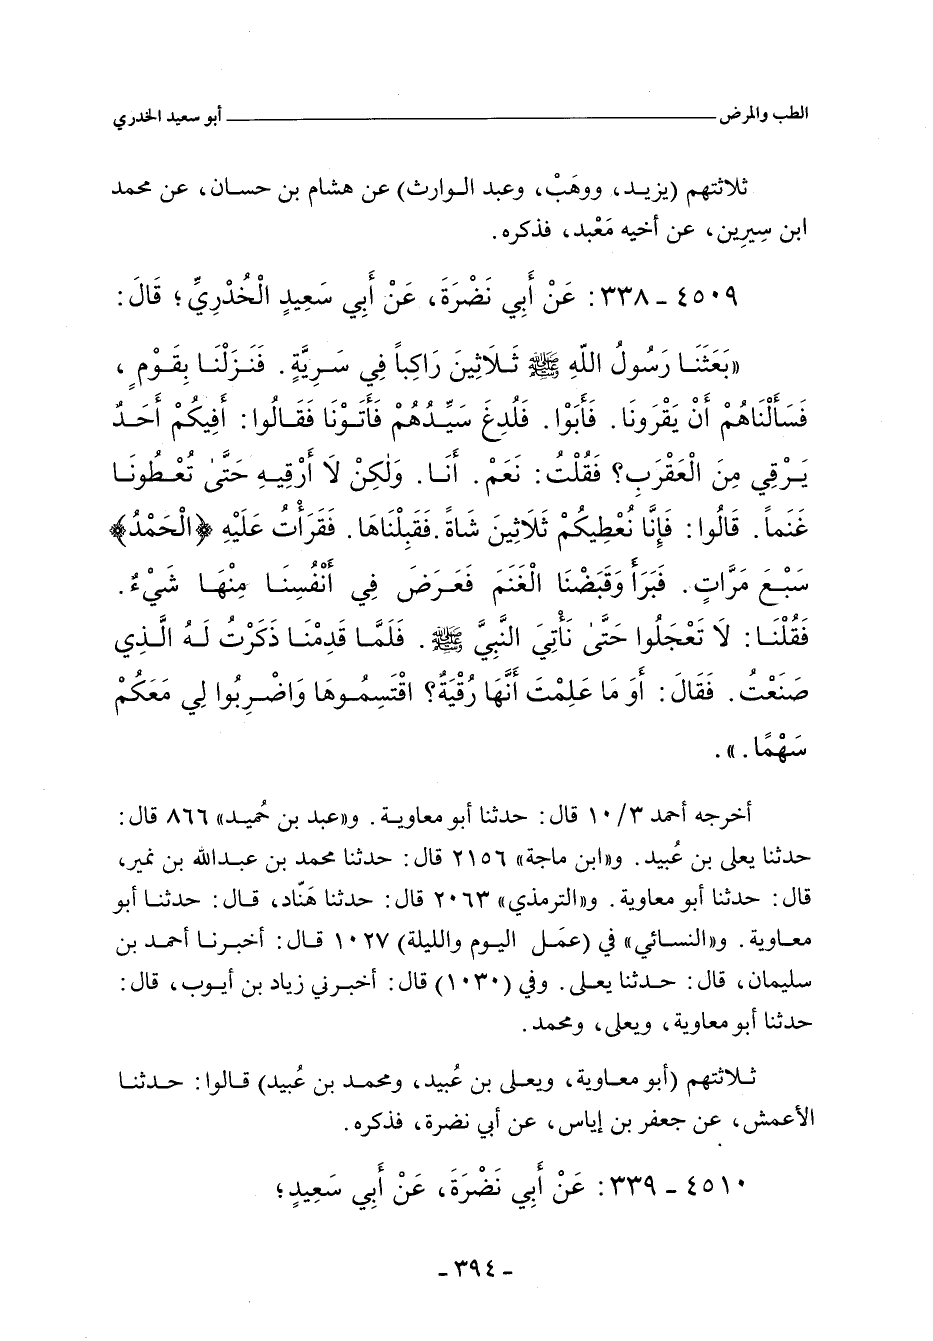 الطب والمرض ــــــــــــ أبو سعيد الخدري
ثلاثتهم (يزيد، ووهَبْ، وعبد الوارث) عن هشام بن حسان، عن محمد
ابن سِيرِين، عن أخيه مَعْبد، فذكره.
٤٥٠٩ ـ ٣٣٨: عَنْ أَبِي نَضْرَةَ، عَنْ أَبِي سَعِيدٍ الْخُدْرِيِّ؛ قَالَ:
«بَعَثَنَا رَسُولُ اللّهِ ﷺ ثَلَاثِينَ رَاكِباً فِي سَرِيَّةٍ. فَنَزَلْنَا بِقَوْمٍ،
فَسَأَلْنَاهُمْ أَنْ يَقْرُونَا. فَأَبَوْا. فَلُدِغَ سَيِّدُهُمْ فَأَتَوْنَا فَقَالُوا: أَفِيكُمْ أَحَدٌ
يَرْقِي مِنَ الْعَقْرَبِ؟ فَقُلْتُ: نَعَمْ. أَنَا. وَلٰكِنْ لَا أَرْقِيهِ حَتَّىٰ تُعْطُونَا
غَنَماً. قَالُوا: فَإِنَّا نُعْطِيكُمْ ثَلَاثِينَ شَاةً. فَقَبِلْنَاهَا. فَقَرَأْتُ عَلَيْهِ ﴿الْحَمْدُ﴾
سَبْعَ مَرَّاتٍ. فَبَرَأَ وَقَبَضْنَا الْغَنَمَ فَعَرَضَ فِي أَنْفُسِنَا مِنْهَا شَيْءٌ.
فَقُلْنَا: لَا تَعْجَلُوا حَتَّىٰ نَأْتِيَ النَّبِيَّ ﷺ. فَلَمَّا قَدِمْنَا ذَكَرْتُ لَهُ الَّذِي
صَنَعْتُ. فَقَالَ: أَوَ مَا عَلِمْتَ أَنَّهَا رُقْيَةٌ؟ اقْتَسِمُوهَا وَاضْرِبُوا لِي مَعَكُمْ
سَهْمًا.».
أخرجه أحمد ١٠/٣ قال: حدثنا أبو معاوية. و«عبد بن حُميد» ٨٦٦ قال:
حدثنا يعلى بن عُبيد. و«ابن ماجة» ٢١٥٦ قال: حدثنا محمد بن عبدالله بن نمير،
قال: حدثنا أبو معاوية. و«الترمذي» ٢٠٦٣ قال: حدثنا هَنّاد، قال: حدثنا أبو
معاوية. و«النسائي» في (عمَل اليوم والليلة) ١٠٢٧ قال: أخبرنا أحمد بن
سليمان، قال: حدثنا يعلى. وفي (١٠٣٠) قال: أخبرني زياد بن أيوب، قال:
حدثنا أبو معاوية، ويعلى، ومحمد.
ثلاثتهم (أبو معاوية، ويعلى بن عُبيد، ومحمد بن عُبيد) قالوا: حدثنا
الأعمش، عن جعفر بن إياس، عن أبي نضرة، فذكره.
٤٥١٠ ـ ٣٣٩: عَنْ أَبِي نَضْرَةَ، عَنْ أَبِي سَعِيدٍ؛
ـ ٣٩٤ ـ